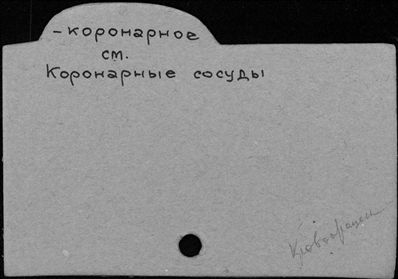 - коронарное
см.
Коронарные сосуды